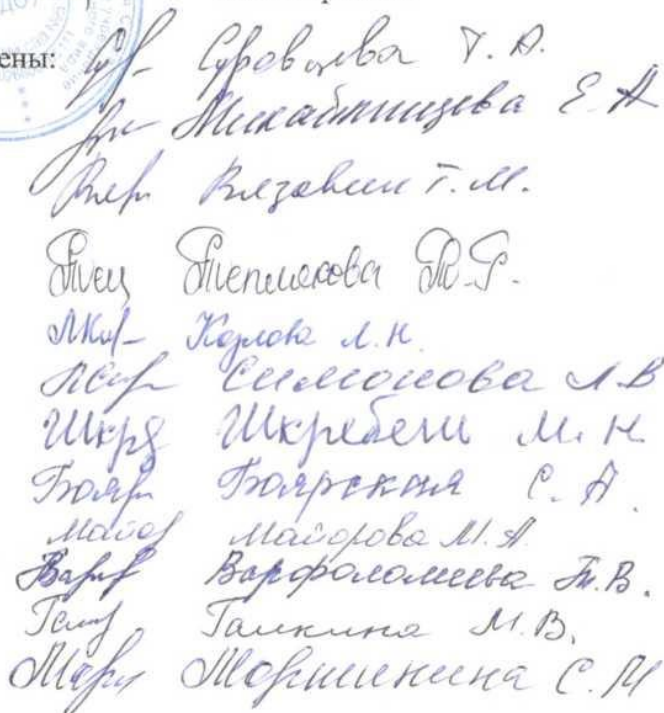 ены: Суровцева Т. А.
Михайлищева Е. А
Вязовин Т. М.
Теплякова Т. Г.
Козлова Л. Н.
Симонова Л. В
Шкребень М. Н.
Боярская С. А.
Майорова М. А.
Варфоломеева Т. В.
Галкина М. В.
Моршинина С. М